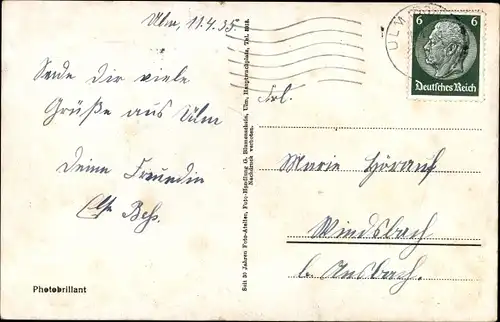 Ulm, 11.4.35
Sende dir viele
Grüße aus Ulm
Deine Freundin
Else Bess.
Photobrillant
Seit 30 Jahren Foto-Atelier, Foto-Handlung, G. Ulm, Hauptwachplatz, Tel.
Nachdruck verboten.
ULM
6 6
Deutsches Reich
Frl.
Marie Hörauf
Windsbach
b. Ansbach.